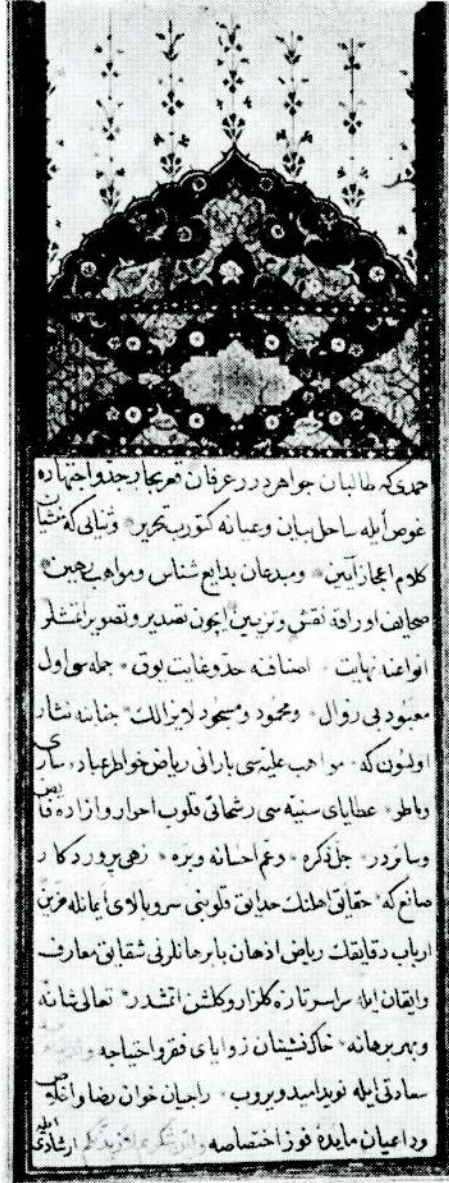 حمدی که طالبان جواهر درر عرفان قعر بحار جد و اجتهاده
غوص أیله ساحل بیان و عیانه کتورب تحریر و ثنائی که منشیان
کلام اعجاز آیین و مبدعان بدایع شناس و مواهب رهین
صحایف اوراقه نقش و تزیین ایچون تصدیر و تصویر ایتمشلر
انواعنه نهایت اصنافنه حد و غایت یوق جمله سی اول
معبود بی زوال و محمود و مسجود لایزالک جنابنه نثار
اولسون که مواهب علیه سی بارانی ریاض خواطر عباده ساری
و ماطر عطایای سنیه سی رشحاتی قلوب احرار و ازاده فایض
و سائردر جل ذکره و عم احسانه و بره زهی پروردکار
صانع که حقایق اهلنك حدایق قلوبنی سرو بالای أیمانله مزین
ارباب دقایقك ریاض اذهان بابرهانلرنی شقایق معارف
و ایقان ایله سراسر تازه کلزار و کلشن ایتمشدر تعالی شانه
و بهر برهانه خاك نشینان زوایای فقر و احتیاجه
سعادتی أیله نوید امید ویروب راجیان خوان رضا و اخلاص
و داعیان مایدۀ فوز اختصاصه ارشادی ایله